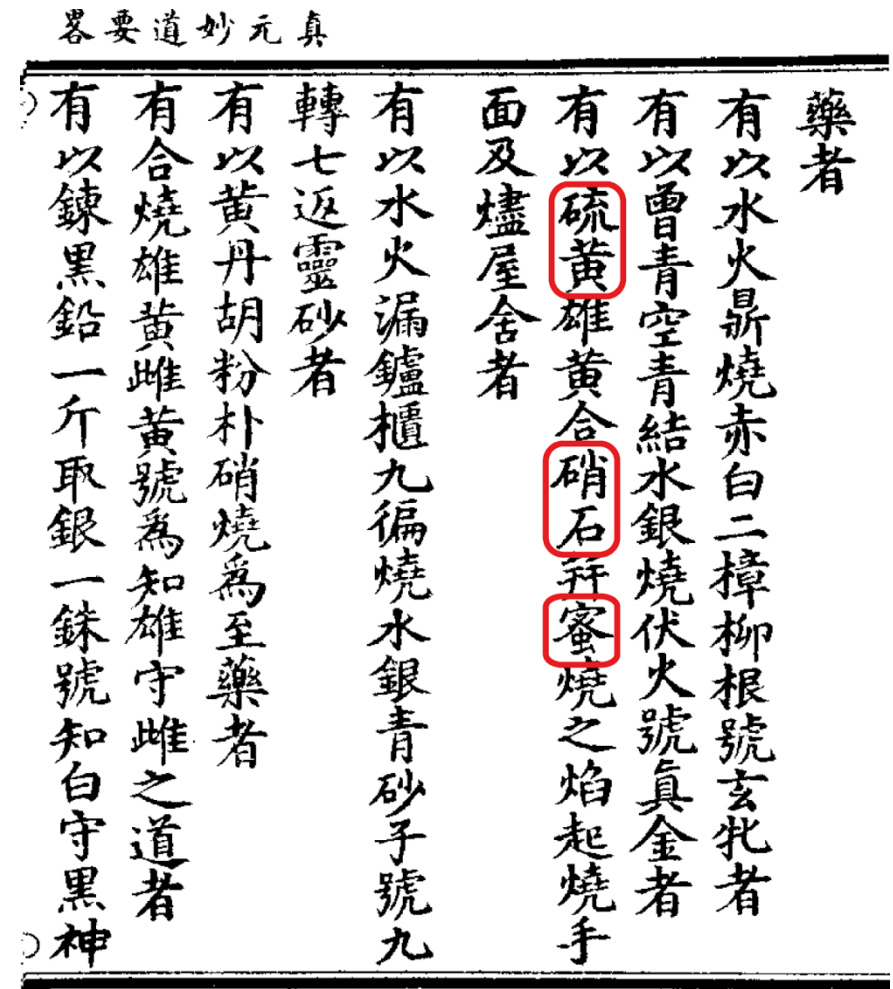 真元妙道要畧
藥者
有以水火鼎燒赤白二樟柳根號玄牝者
有以曾青空青結水銀燒伏火號眞金者
有以硫黄雄黄合硝石幷蜜燒之焰起燒手
面及燼屋舍者
有以水火漏鑪櫃九徧燒水銀青砂子號九
轉七返靈砂者
有以黄丹胡粉朴硝燒爲至藥者
有合燒雄黄雌黄號爲知雄守雌之道者
有以鍊黒鉛一斤取銀一銖號知白守黒神